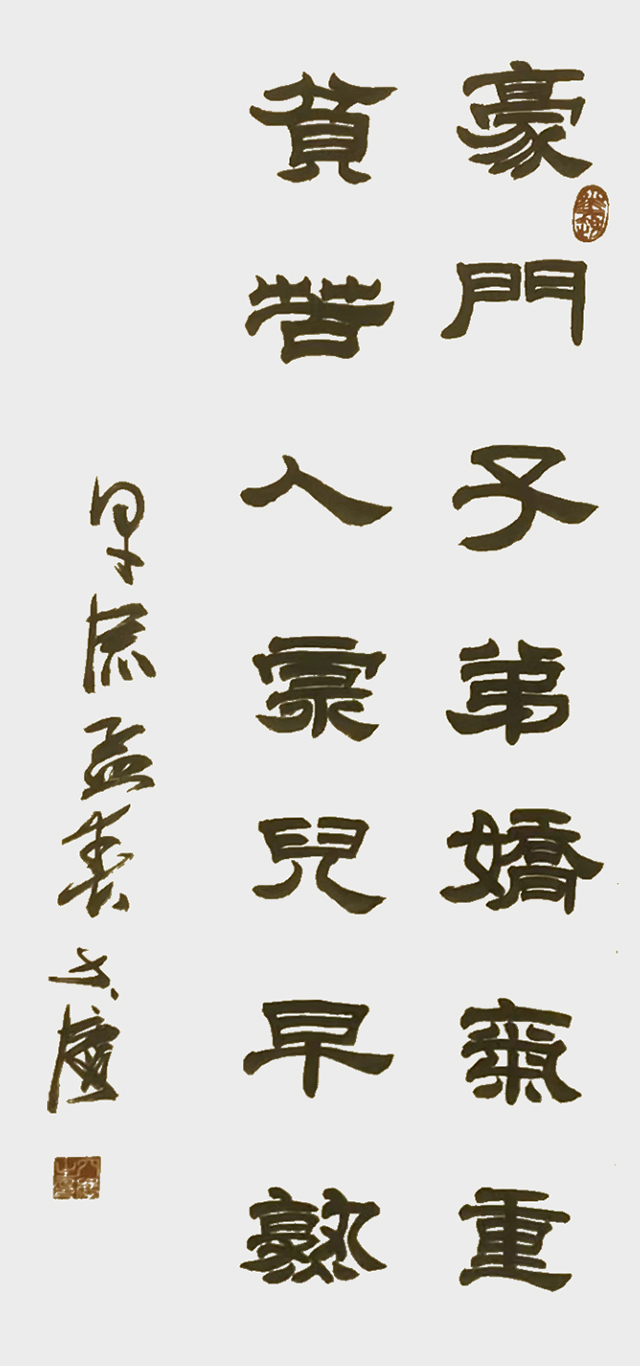 豪門子弟嬌氣重
貧苦人家兒早熟
甲辰孟春文慶